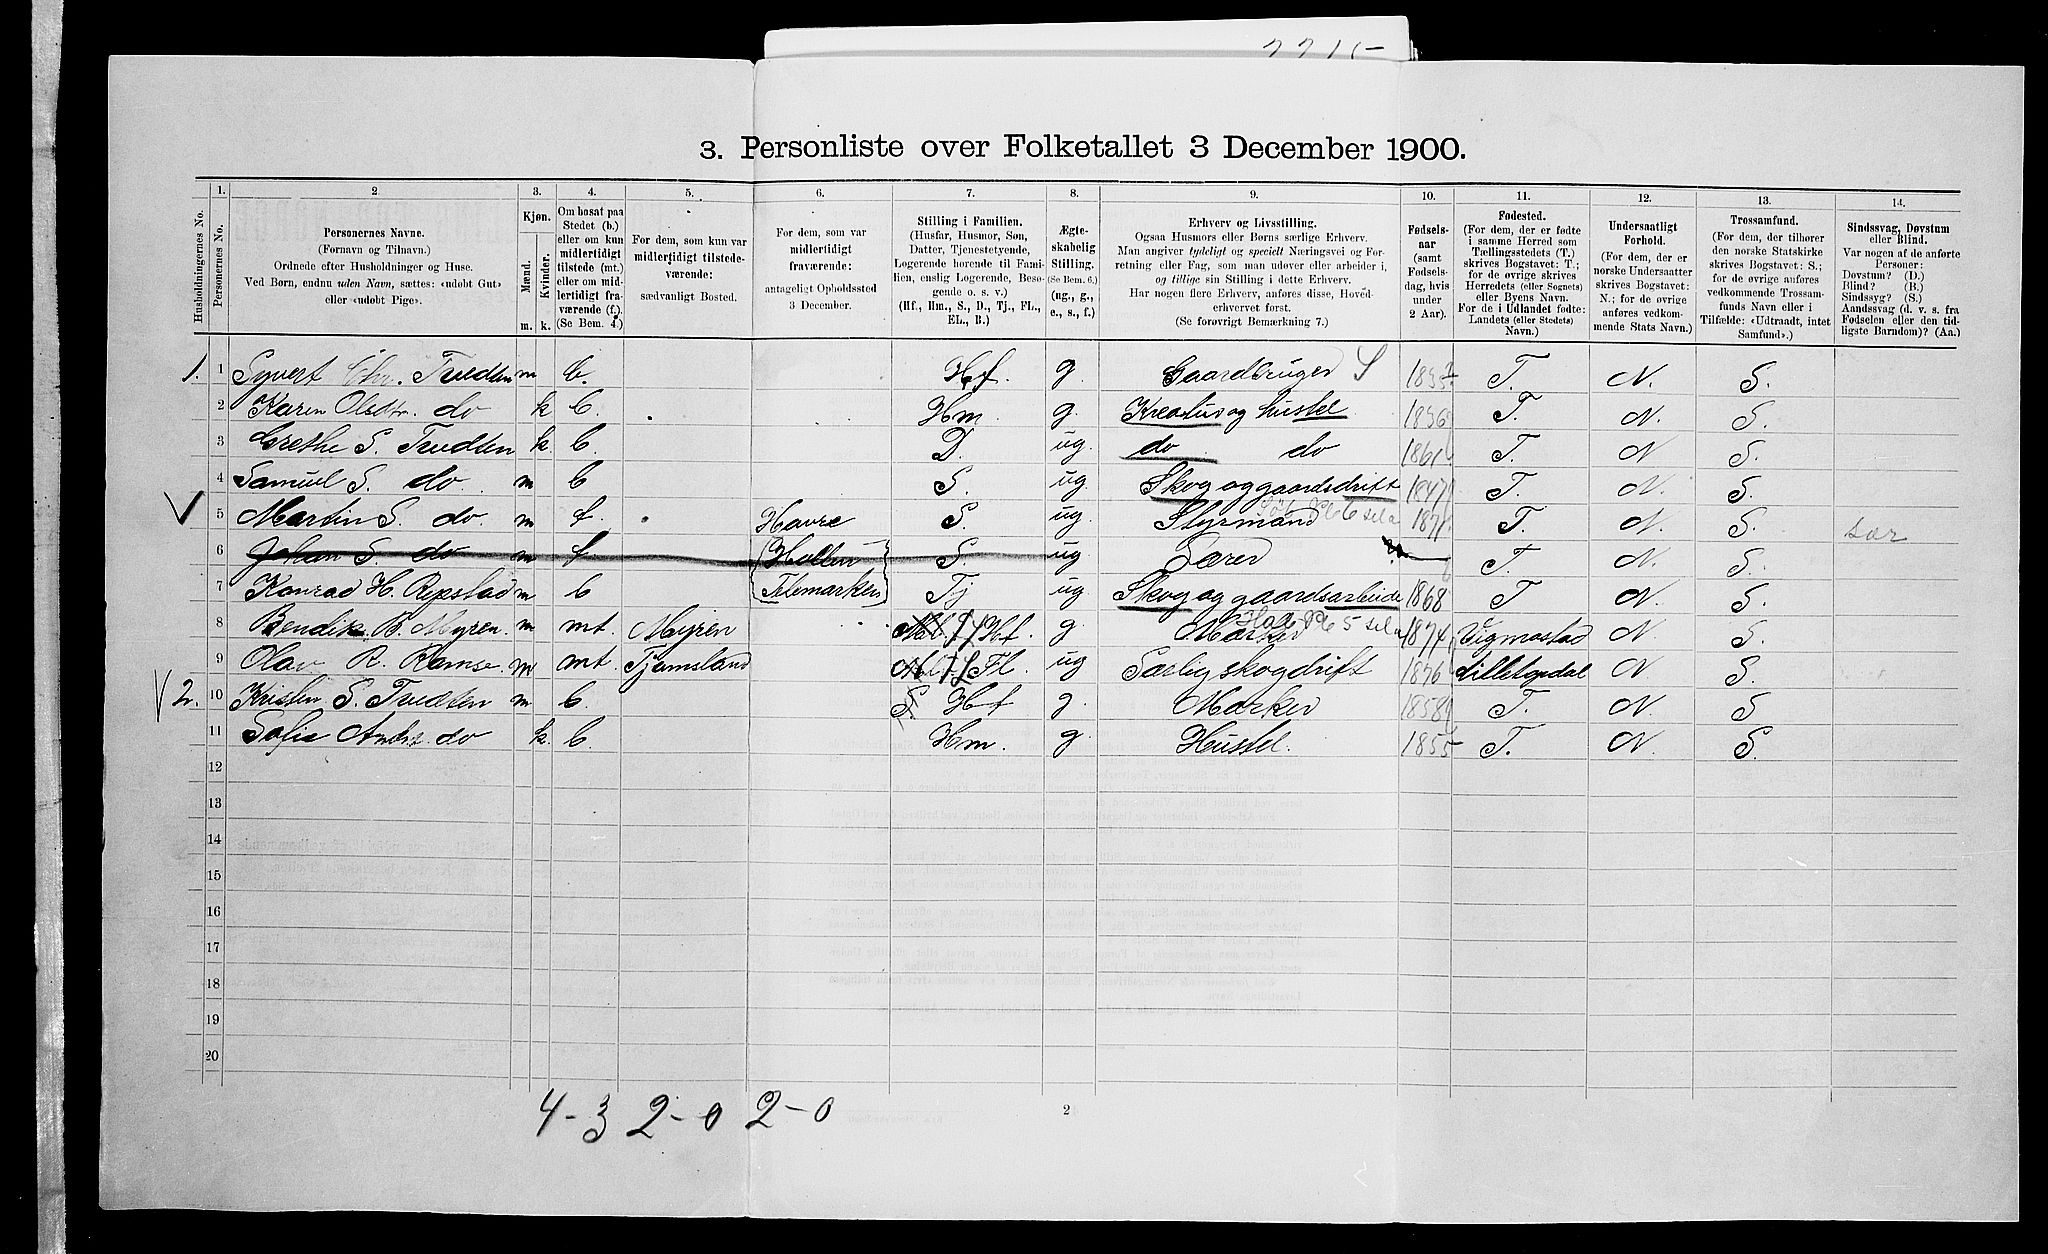 3. Personliste over Folketallet 3 December 1900.
Husholdningernes No.
1. Personernes No.
2. Personernes Navne. (Fornavn og Tilnavn.) Ordnede efter Husholdninger og Huse. Ved Børn, endnu uden Navn, sættes: «udobt Gut» eller «udobt Pige».
3. Kjøn. Mænd. m. Kvinder. k.
4. Om bosat paa Stedet (b.) eller om kun midlertidigt tilstede (mt.) eller om midlertidigt fraværende (f.). (Se Bem. 4.)
5. For dem, som kun var midlertidigt tilstedeværende: sædvanligt Bosted.
6. For dem, som var midlertidigt fraværende: antageligt Opholdssted 3 December.
7. Stilling i Familien. (Husfar, Husmor, Søn, Datter, Tjenestetyende, Logerende hørende til Familien, enslig Logerende, Besøgende o. s. v.) (Hf., Hm., S., D., Tj., FL., EL., B.)
8. Ægteskabelig Stilling. (Se Bem. 6.) (ug., g., e., s., f.)
9. Erhverv og Livsstilling. Ogsaa Husmors eller Børns særlige Erhverv. Man angiver tydeligt og specielt Næringsvei og Forretning eller Fag, som man udøver eller arbeider i, og tillige sin Stilling i dette Erhverv. Har nogen flere Erhverv, anføres disse, Hovederhvervet først. (Se forøvrigt Bemærkning 7.)
10. Fødselsaar (samt Fødselsdag, hvis under 2 Aar).
11. Fødested. (For dem, der er fødte i samme Herred som Tællingsstedets (T.) skrives Bogstavet: T.; for de øvrige skrives Herredets (eller Sognets) eller Byens Navn. For de i Udlandet fødte: Landets (eller Stedets) Navn.)
12. Undersaatligt Forhold. (For dem, der er norske Undersaatter skrives Bogstavet: N.; for de øvrige anføres vedkommende Stats Navn.)
13. Trossamfund. (For dem, der tilhører den norske Statskirke skrives Bogstavet: S.; for de øvrige anføres vedkommende Trossamfunds Navn eller i Tilfælde: «Udtraadt, intet Samfund».)
14. Sindssvag, Døvstum eller Blind. Var nogen af de anførte Personer: Døvstum? (D.) Blind? (B.) Sindssyg? (S.) Aandssvag (d. v. s. fra Fødselen eller den tidligste Barndom)? (Aa.)
1. 1 Syvert Chr. Tredten m b. Hf. g. Gaardbruger S T. N. S.
2 Karen Olsdtr. do k b. Hm g. Kreatur og hustel 1836 T. N. S.
3 Grethe S. Tredten k. b. D. ug. do do 1861 T. N S.
4 Samuel S. do m b S. ug. Skog og gaardsdrift T. N. S.
5 Martin S. do. m f. Havre S. ug. Styrmand 1871. T. N S.
6 Johan S. do m f Hollen S. ug Lærer T. N. S.
7 Konrad H. Repstad m b Telemarken Tj ug Skog og gaardsarbeide 1868 T N. S.
8 Bendik B. Myren. m mt. Myren Hf. g. Marker 1874 Vigmostad N S.
9 Olav R. Ramse m mt. Tjomsland Fl. ug Særlig skogdrift 1876 N. S.
2. 10 Kristen S. Tredten m b. S. Hf g. Marker 1858 T. N. S
11 Sofie Andr. do k. b. Hm. g. Hustel. 1855 T. N. S.
12
13
14
15
16
17
18
19
20
4-3 2-0 2-0
2